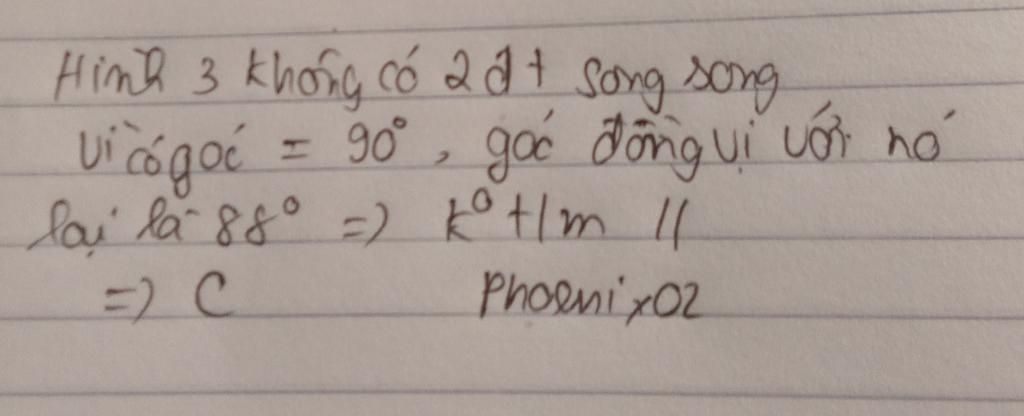 Hình 3 không có 2 đt song song
vì có góc = 90°, góc đồng vị với nó
lại là 88° => k° t/m //
=> C Phoenix02